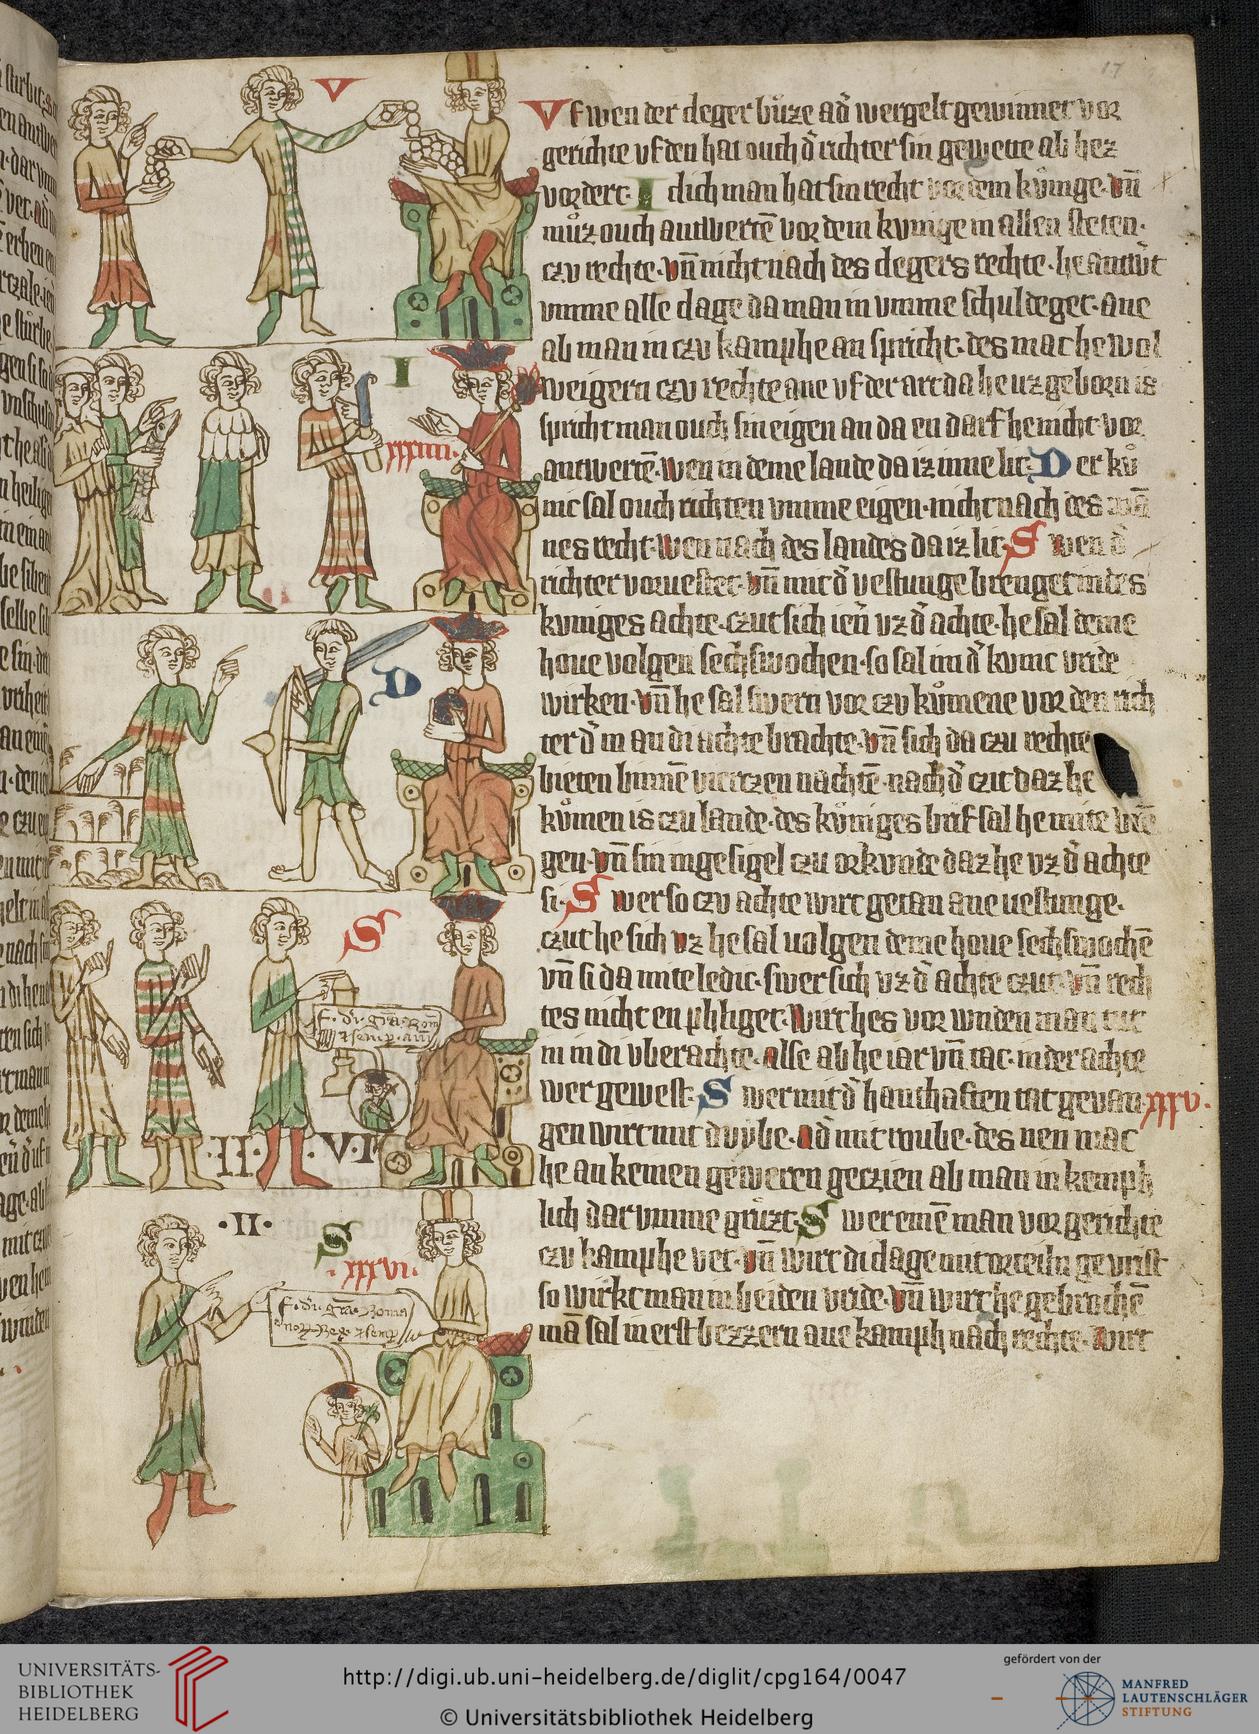 17
V
Vf wen der deger buͦze ad̄ wergelt gewinnet vor
gerichte vf den hat ouch d̄ richter sin gewette ab hez
vordert. I clich man hat sin recht vor dem kuͤnge. vn̄
muͦz ouch antwertē vor dem kvnige in allen steten.
czv rechte. vn̄ nicht nach des clegers rechte. he antwͤt
vmme alle clage da man in vmme schuldeget. ane
ab man in czv kamphe an spricht. des mac he wol
weigern czv rechte ane vf der art da he uz geborn is
spricht man ouch sin eigen an da en darf he nicht vor
antwertē. wen in deme lande da iz inne lit. Der kuͤ
nic sal ouch richten vmme eigen. nicht nach des mā
nes recht. wen nach des landes da iz lit. Swen d̄
richter voruestet. vn̄ mit d̄ vestunge brenget in des
kvniges achte. czut sich ien̄ vz d̄ achte. he sal deme
houe volgen sechs wochen. so sal im d̄ kvnic vride
wirken. vn̄ he sal swern vor czv kuͤmene vor den rich
ter d̄ in an di achte brachte. vn̄ sich da czu rechte
bieten binnē virtzen nachtē. nach d̄ czit daz he
kuͤmen is czu lande. des kuͤniges brif sal he mite bre
gen. vn̄ sin ingesigel czu orkvnde daz he vz d̄ achte
si. Swer so czv achte wirt getan ane uestunge.
czut he sich vz he sal uolgen deme houe sechs wochē
vn̄ si da mite ledic. swer sich vz d̄ achte czut. vn̄ rech
tes nicht en phliget. wirt hes vor wnden man tut
in in di vberachte. alse ab he iar vn̄ tac. in der achte
wer gewest. Swer mit d̄ hanthaften tat gevan xxxv.
gen wirt mit dvvbe. ad̄ mit roube. des nen mac
he an keinen geweren gerzien ab man in kemph
lich dar vmme gruͤzt. Swer einē man vor gerichte
czv kamphe vet. vn̄ wirt di clage mit orteiln gevrist
so wirkt man in beiden vride. vn̄ wirt he gebrochē
mā sal in erst bezzern ane kamph nach rechte. wirt
I
xxxiiii.
D
S
F. di. gr̄a. Rom
.II.
.VI
.II.
S
.xxxvi.
F. di. gr̄a. Roma
UNIVERSITÄTS-
BIBLIOTHEK
HEIDELBERG
http://digi.ub.uni-heidelberg.de/diglit/cpg164/0047
© Universitätsbibliothek Heidelberg
gefördert von der
MANFRED
LAUTENSCHLÄGER
STIFTUNG